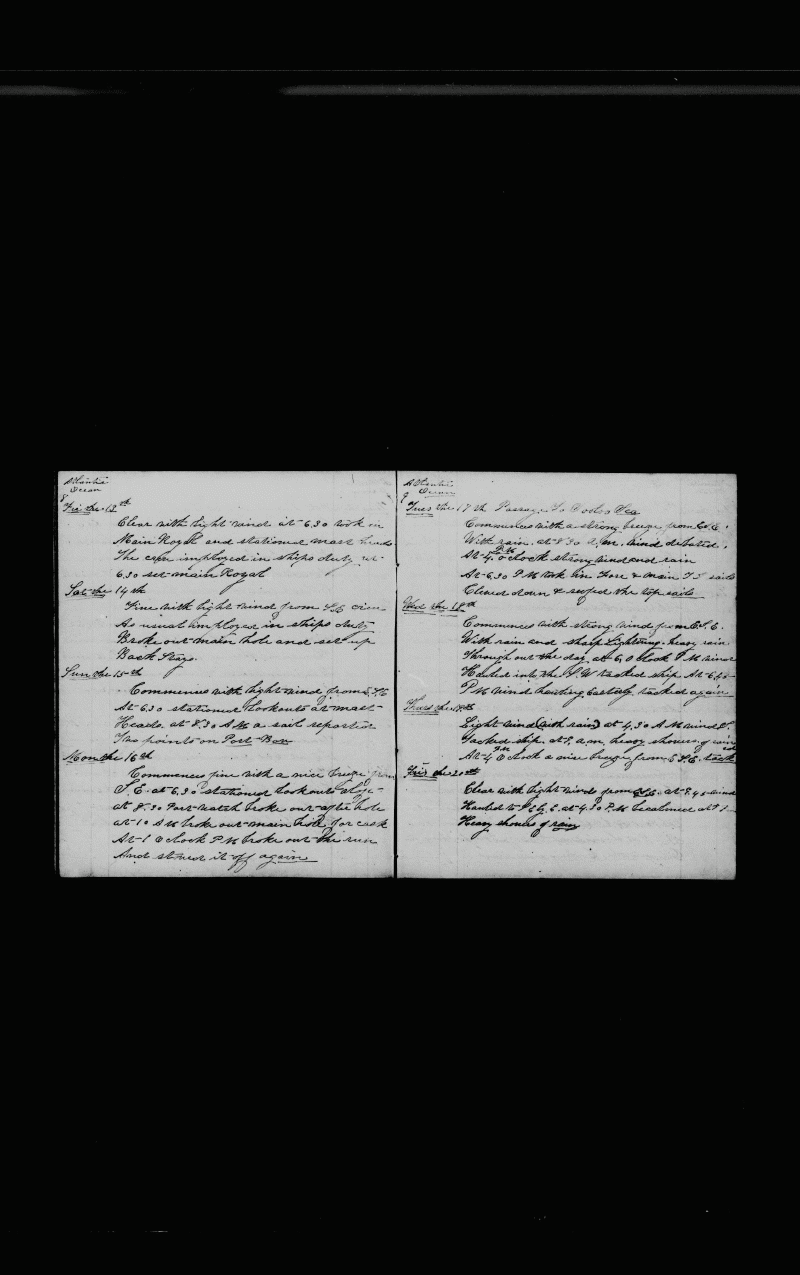 Atlantic
Ocean
8
Fri the 13th
Clear with light wind at 6.30 took in
Main Royal and stationed mast heads
The crew imployed in ships duty at
6.30 set main Royal
Sat the 14th
Fine with light wind from S.E. crew
As usual imployed in ships duty
Broke out main hole and set up
Back Stays.
Sun the 15th
Commences with light wind from S.E
At 6.30 stationed Lookouts at mast
Heads. at 8.30 AM a sail reported
Two points on Port Bow
Mon the 16th
Commences fine with a nice breeze from
S.E. at 6.30 stationed Lookouts
at 8.30 Port watch broke out after hole
at 10 AM broke out main hole for cask
At 1 O clock PM broke out the run
And stowed it off again
Atlantic
Ocean
9
Tues the 17th Passage To
Commences with a strong breeze from
With rain. at 8.30 a.m. wind
At 4 PM o clock strong wind and rain
At 6.30 PM took in Fore & main sails
Clewed down & reefed the top sails
Wed the 18th
Commences with strong wind from E.S.E.
With rain and sharp Lightning. heavy rain
Through out the day at 6 O clock PM wind
Hauled into the S.W tacked ship At
PM wind hauling Easterly tacked again
Thurs the 19th
Light wind (with rain) at 4.30 AM wind S.
Tacked ship. at a.m. heavy showers of
At 4 PM O clock a nice breeze from E.S.E. tack
Fri the 20th
Clear with light wind from S.E. at 8.45 wind
Hauled to S.E by E. at 4.30 P.M becalmed at
Heavy showers of rain